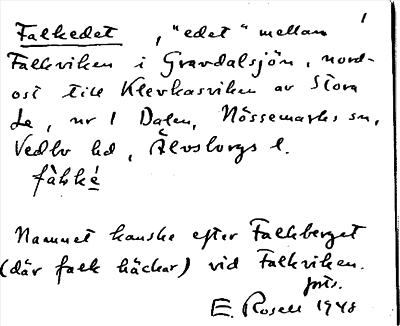 1
Falkedet, "edet" mellan
Falkviken i Gravdalsjön, nord-
ost till Klevkasviken av Stora
Le, nr 1 Dalen, Nössemarks sn,
Vedbo hd, Älvsborgs l.
Namnet kanske efter Falkberget
(där falk häckar) vid Falkviken.
E. Rosell 1948